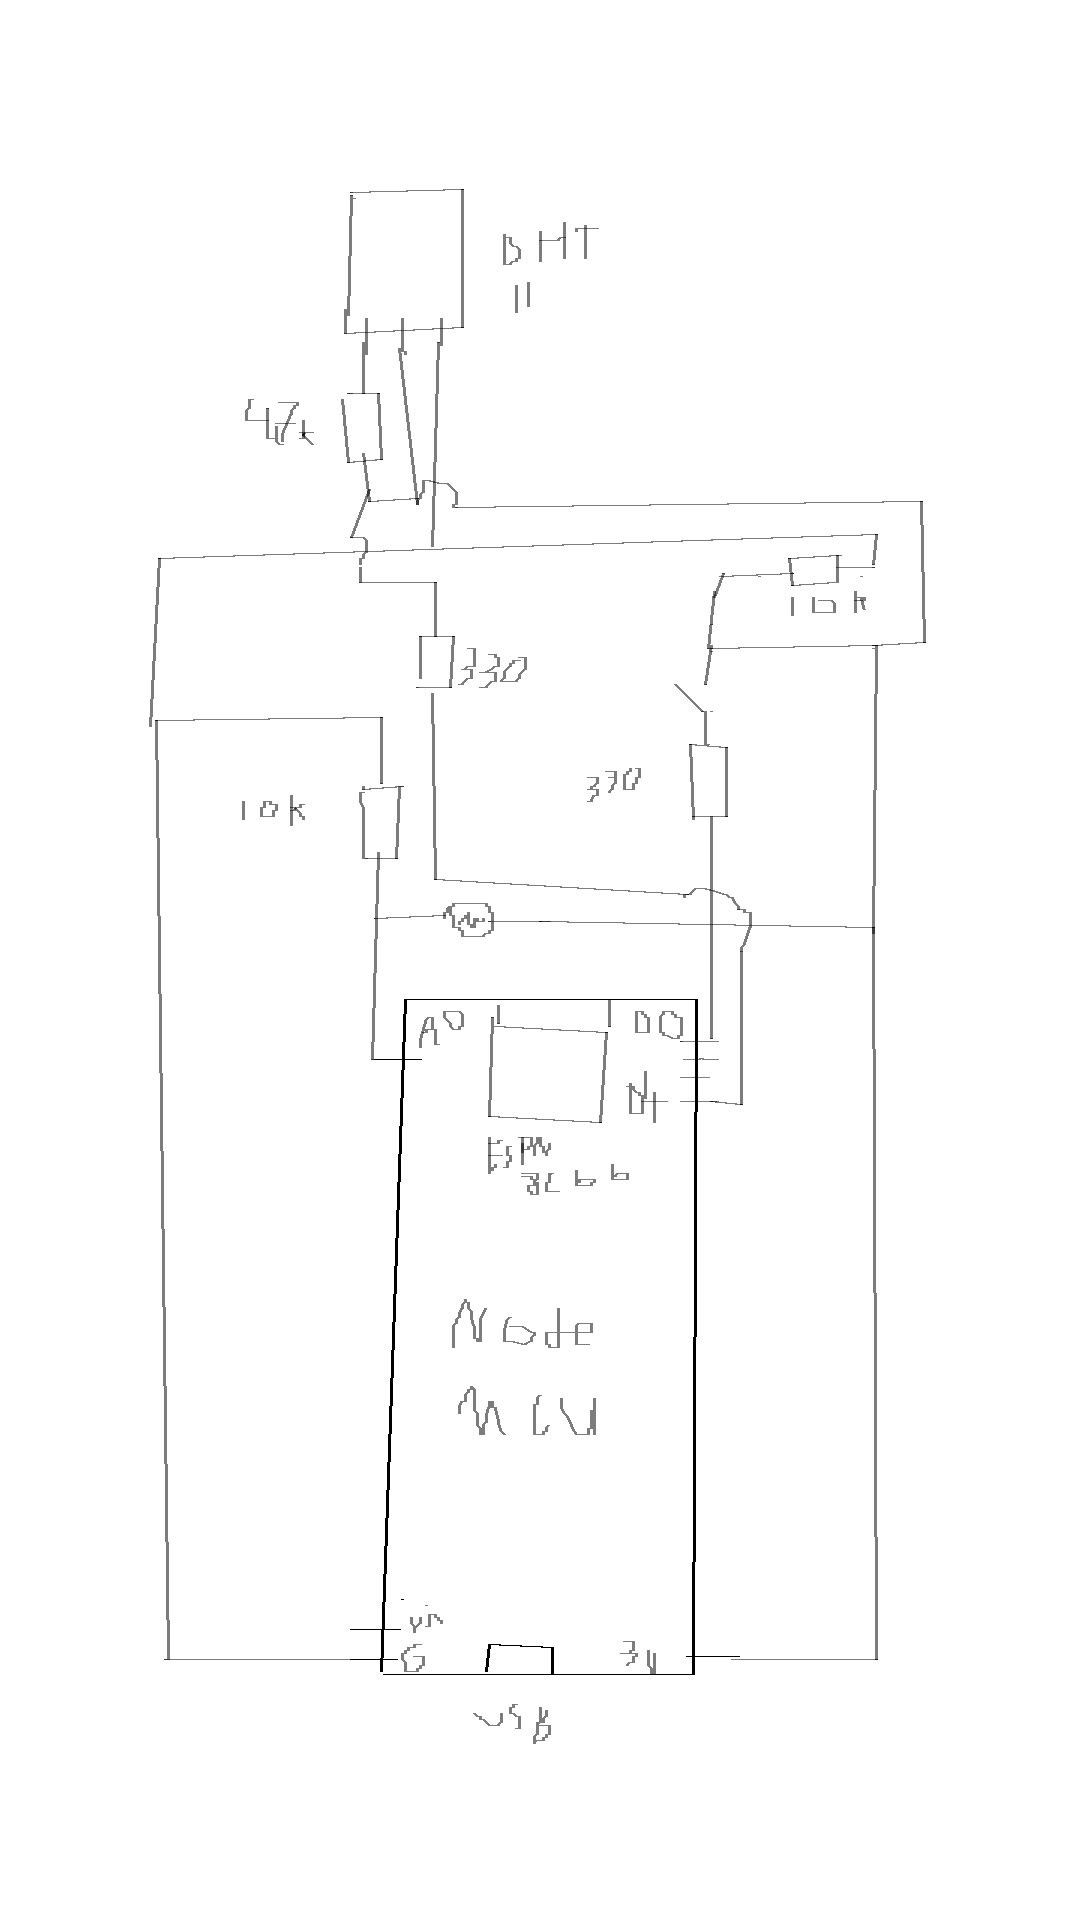 DHT
11
47k
10k
330
370
10k
A0
D0
D4
ESP
8266
Node
MCU
Vn
G
3V
USB